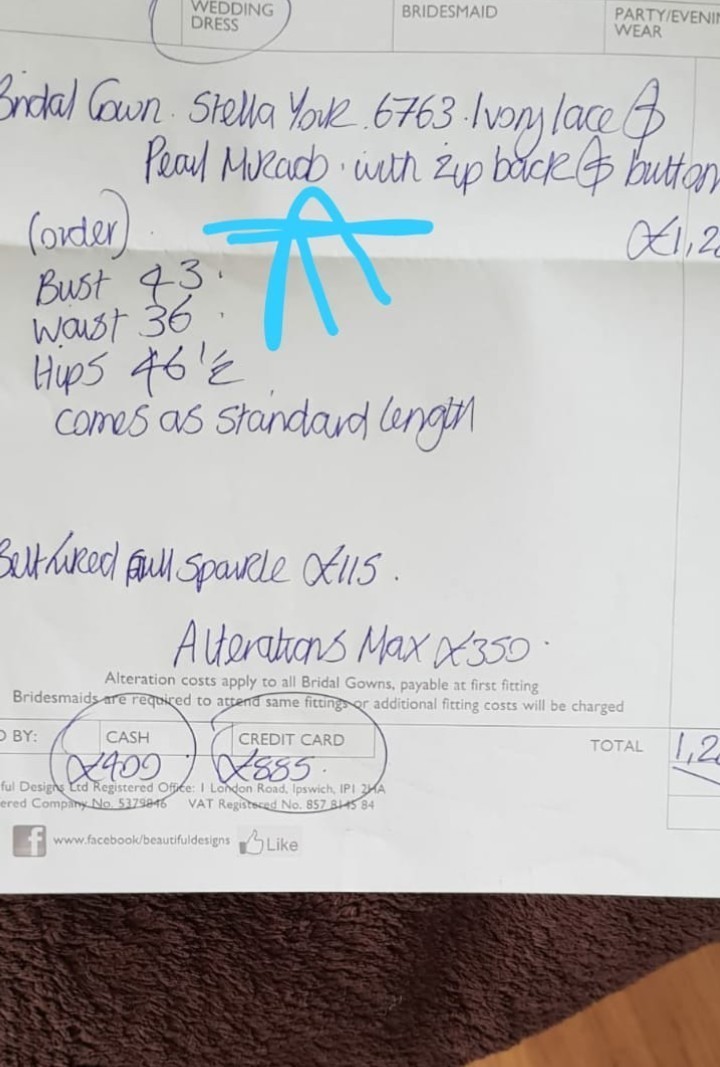 WEDDING
DRESS
BRIDESMAID
PARTY/EVENIN
WEAR
Bridal Gown. Stella York. 6763. Ivory lace &
Pearl with zip back & button
(order)
£1,28
Bust 43
Waist 36
Hips 46 1/2
comes as standard length
Belt full sparkle £115.
Alterations Max £350.
Alteration costs apply to all Bridal Gowns, payable at first fitting
Bridesmaids are required to attend same fittings or additional fitting costs will be charged
D BY:
CASH
CREDIT CARD
TOTAL
1,28
£400
£885.
ful Designs Ltd Registered Office: 1 London Road, Ipswich, IP1 2HA
ered Company No. 5379846 VAT Registered No. 857 8145 84
f www.facebook/beautifuldesigns Like